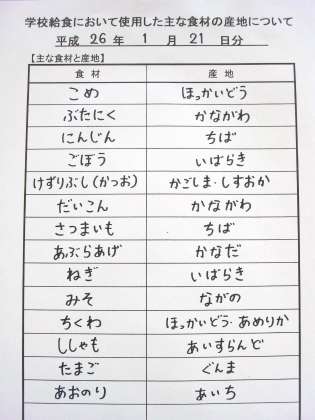 学校給食において使用した主な食材の産地について
平成 26 年 1 月 21 日分
【主な食材と産地】
食材 産地
こめ ほっかいどう
ぶたにく かながわ
にんじん ちば
ごぼう いばらき
けずりぶし(かつお) かごしま・しずおか
だいこん かながわ
さつまいも ちば
あぶらあげ かなだ
ねぎ いばらき
みそ ながの
ちくわ ほっかいどう・あめりか
ししゃも あいすらんど
たまご ぐんま
あおのり あいち